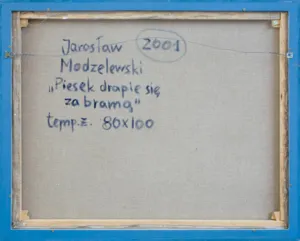 Jarosław 2001
Modzelewski
„Piesek drapie się
za bramą"
temp.ż. 80x100